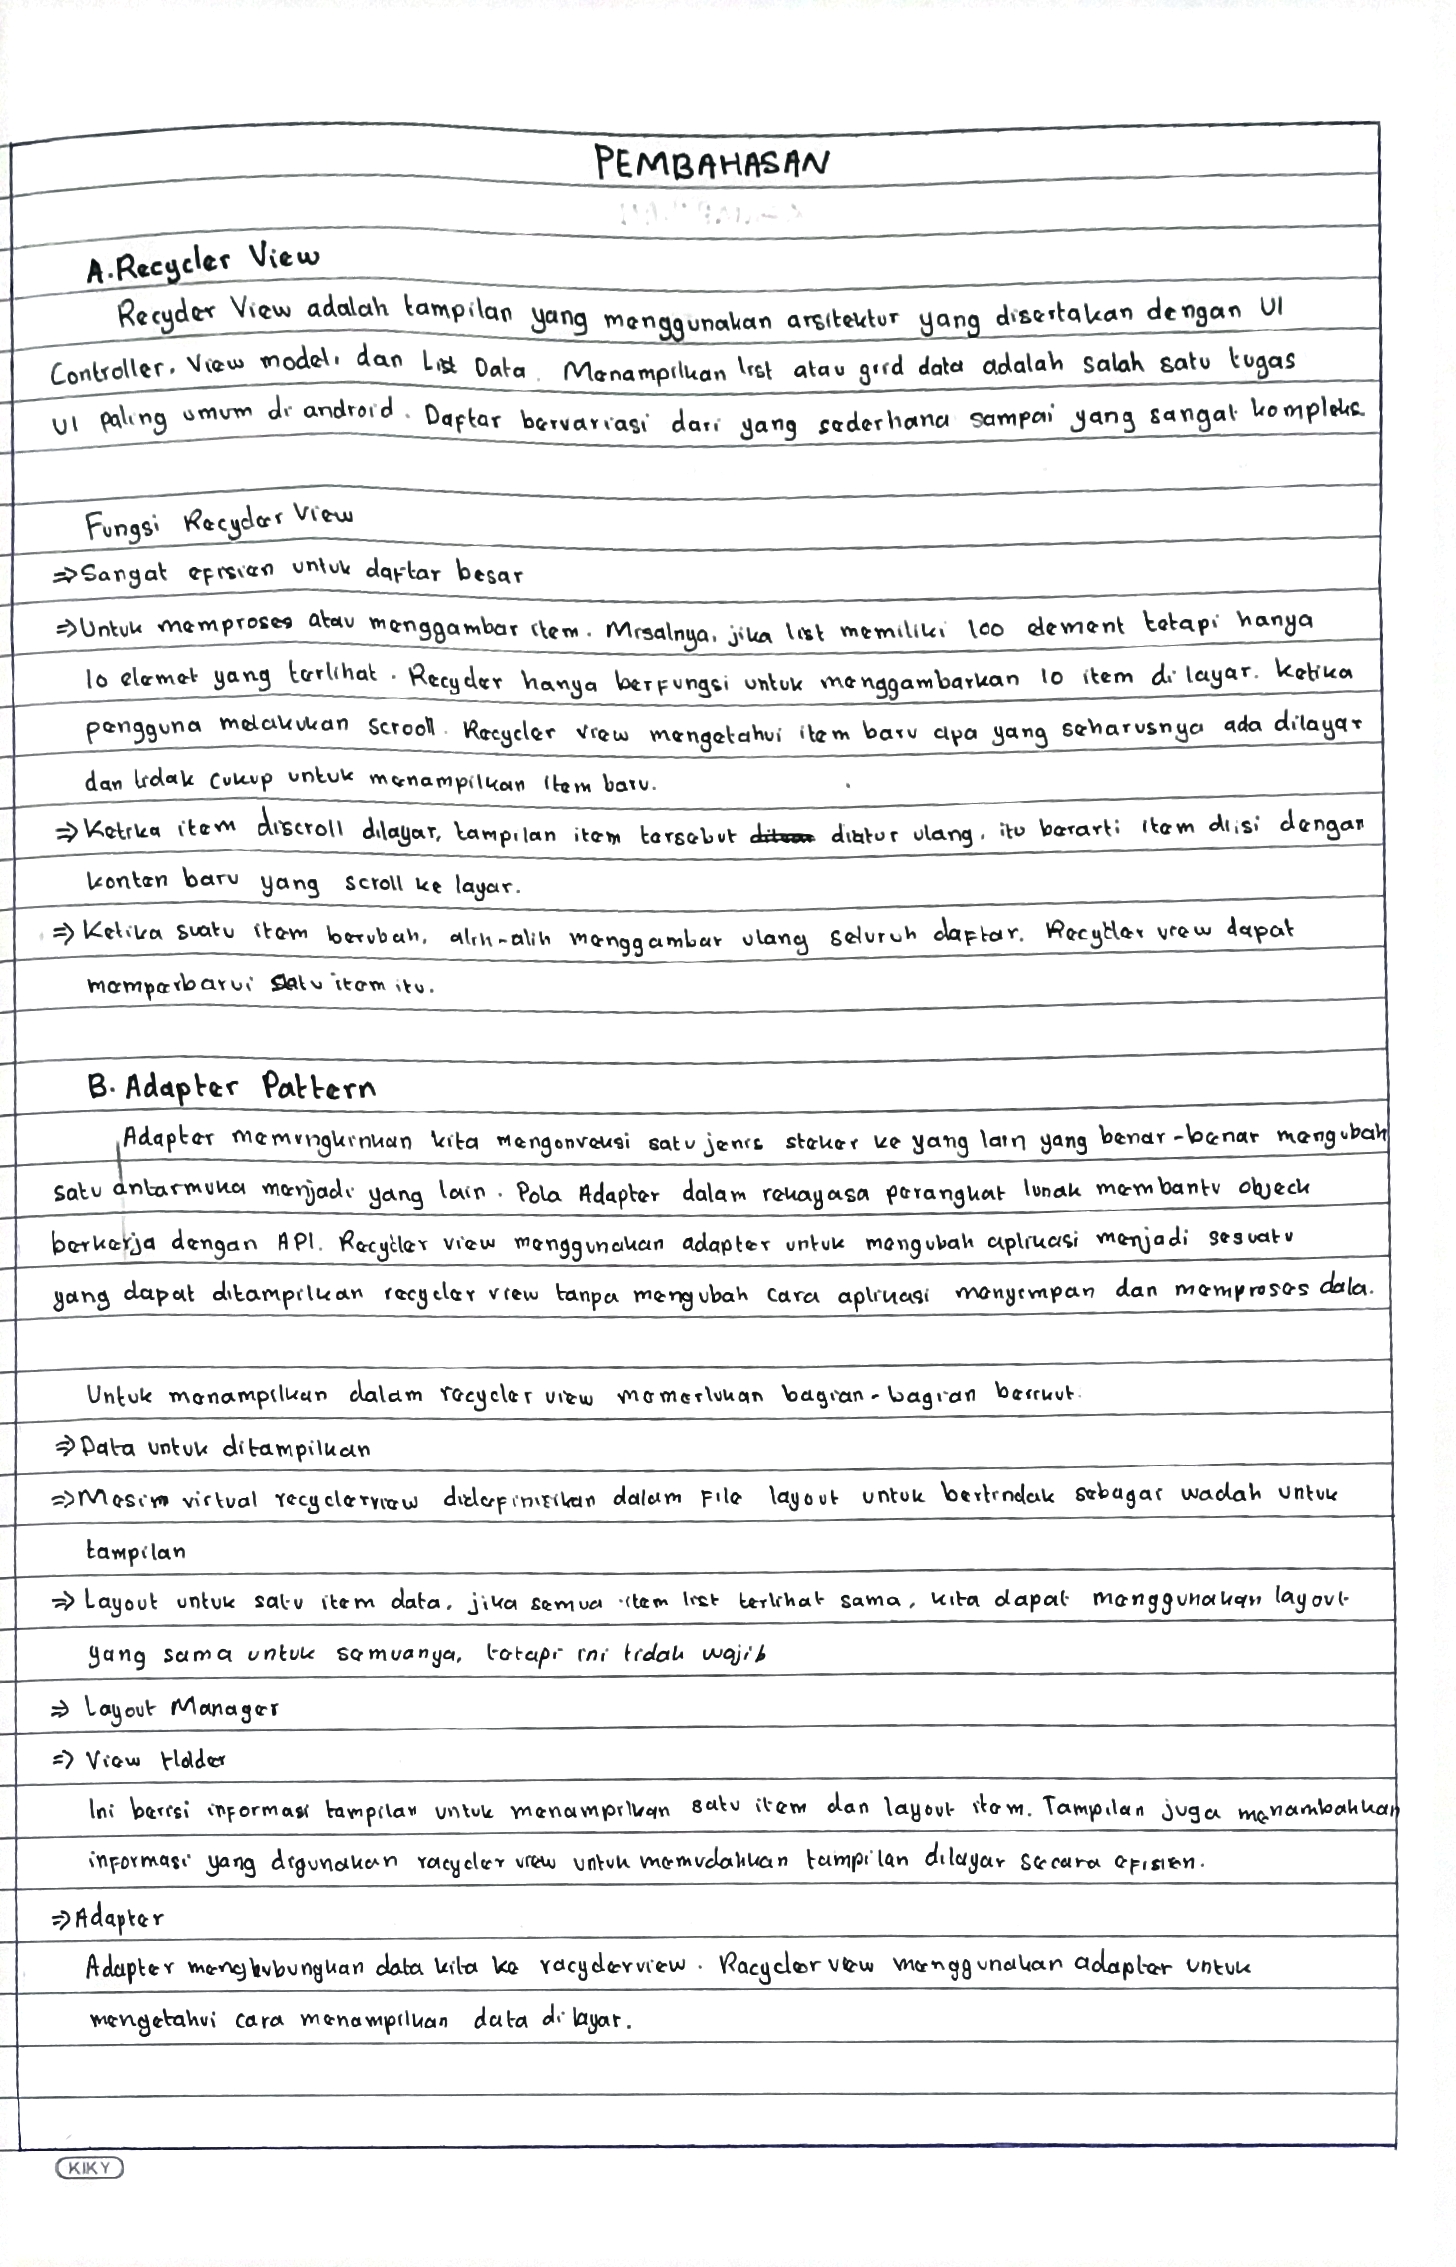 PEMBAHASAN
A. Recycler View
Recycler View adalah tampilan yang menggunakan arsitektur yang disertakan dengan UI
Controller, View model, dan List Data. Menampilkan list atau grid data adalah salah satu tugas
UI paling umum di android. Daftar bervariasi dari yang sederhana sampai yang sangat kompleks
Fungsi Recycler View
⇒ Sangat efisien untuk daftar besar
⇒ Untuk memproses atau menggambar item. Misalnya, jika list memiliki 100 element tetapi hanya
10 elemet yang terlihat. Recycler hanya berfungsi untuk menggambarkan 10 item di layar. Ketika
pengguna melakukan scrooll. Recycler view mengetahui item baru apa yang seharusnya ada dilayar
dan tidak cukup untuk menampilkan item baru.
⇒ Ketika item discroll dilayar, tampilan item tersebut diatur ulang, itu berarti item diisi dengan
konten baru yang scroll ke layar.
⇒ Ketika suatu item berubah, alih-alih menggambar ulang seluruh daftar. Recycler view dapat
memperbarui satu item itu.
B. Adapter Pattern
Adapter memungkinkan kita mengonveksi satu jenis steker ke yang lain yang benar-benar mengubah
satu antarmuka menjadi yang lain. Pola Adapter dalam rekayasa perangkat lunak membantu objeck
berkerja dengan API. Recycler view menggunakan adapter untuk mengubah aplikasi menjadi sesuatu
yang dapat ditampilkan recycler view tanpa mengubah cara aplikasi menyimpan dan memproses data.
Untuk menampilkan dalam recycler view memerlukan bagian-bagian berikut.
⇒ Data untuk ditampilkan
⇒ Mesim virtual recyclerview didefinisikan dalam File layout untuk bertindak sebagai wadah untuk
tampilan
⇒ Layout untuk satu item data, jika semua item list terlihat sama, kita dapat menggunakan layout
yang sama untuk semuanya, tetapi ini tidak wajib
⇒ Layout Manager
⇒ View Holder
Ini berisi informasi tampilan untuk menampilkan satu item dan layout item. Tampilan juga menambahkan
informasi yang digunakan recycler view untuk memudahkan tampilan dilayar secara efisien.
⇒ Adapter
Adapter menghubungkan data kita ke recyclerview. Recycler view menggunakan adapter untuk
mengetahui cara menampilkan data di layar.
KIKY